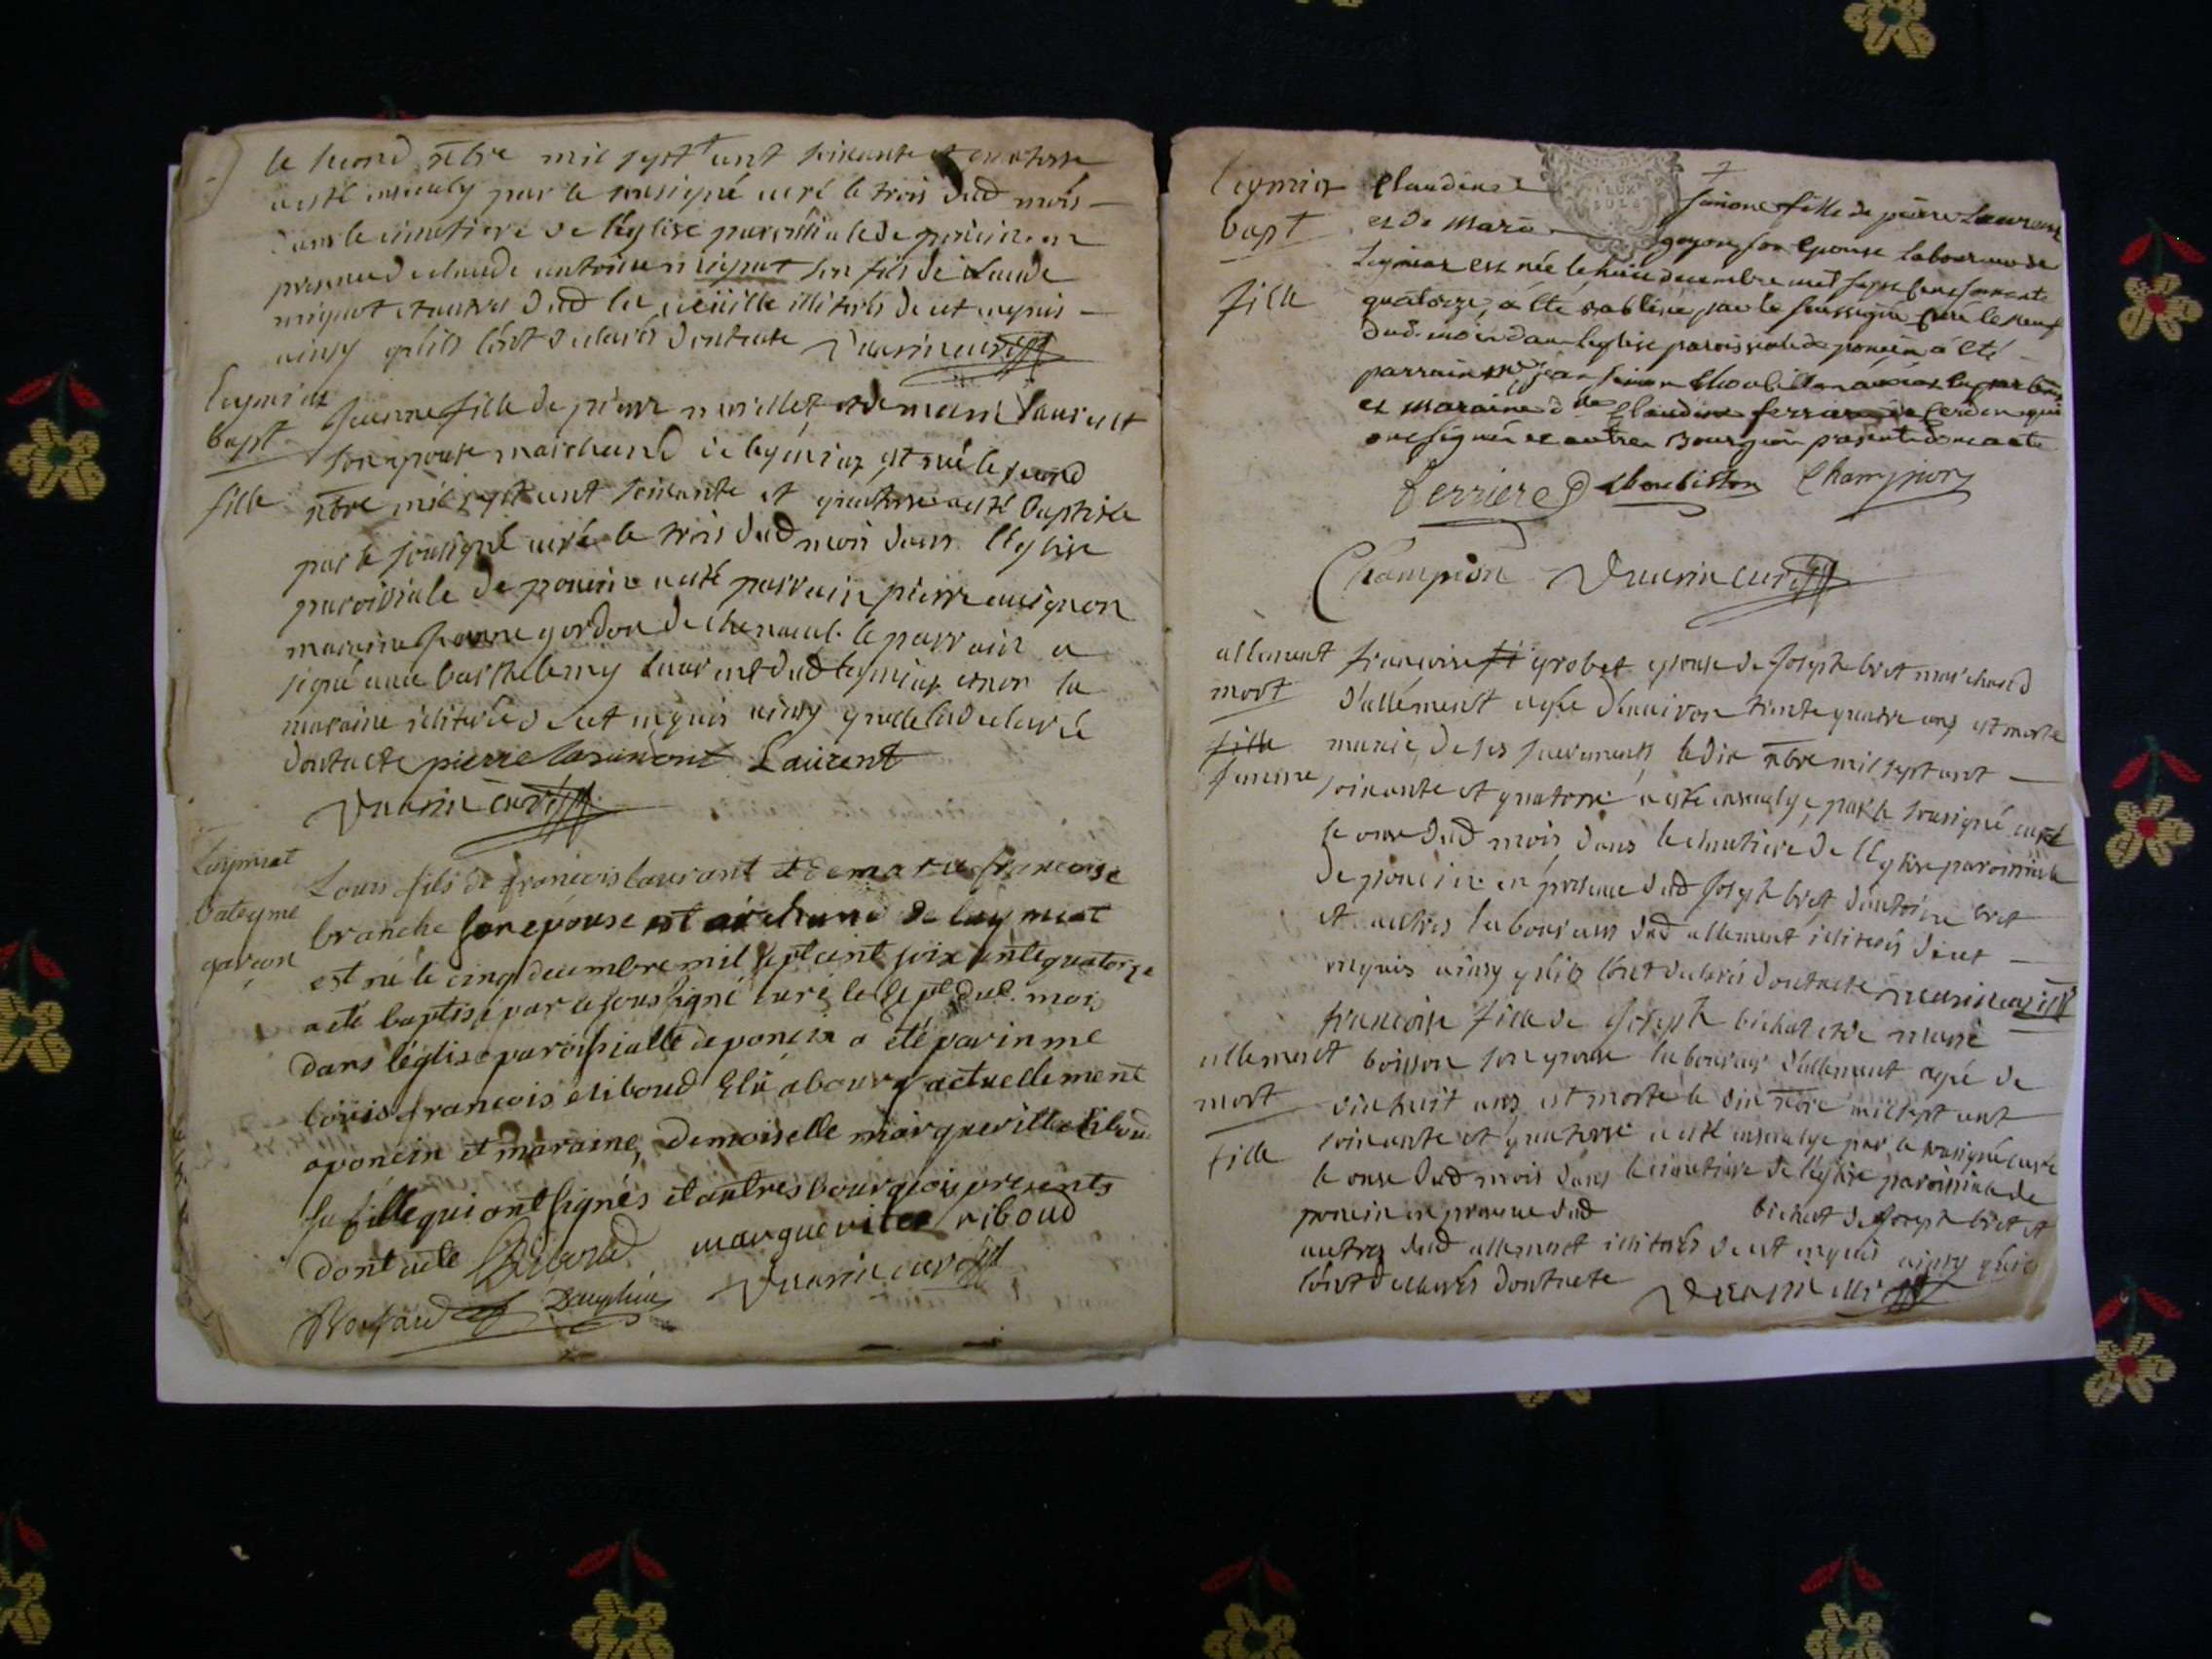 le second xbre mil sept cent soixante et quatorse
a esté inseuely par le sousigné curé le trois dud mois
dans le cimetiere de l'eglise paroissiale de poncin en
presence de claude antoine mignot son fils de claude
mignot et autres dud lieu illiterés de cet enquis
ainsy qu'ils l'ont declarés dont acte
leymiat
bapt
fille
jeanne fille de pierre et de marie laurent
son epouse marchand de leymiat est née le second
xbre mil sept cent soixante et quatorse a esté baptisée
par le sousigné curé le trois dud mois dans l'eglise
paroissiale de poncin a esté parrain pierre
maraine jeanne gordon de le parrain a
signé avec barthelemy laurent dud leymiat et non la
maraine illiterée de cet enquis ainsy qu'elle l'a declaré
dont acte pierre Laurent
curé
Leymiat
bateyme
garçon
Louis fils de françois laurant et de marie françoise
branche son epouse marchand de laymiat
est né le cinq decembre mil sept cent soixante quatorze
a eté baptisé par le soussigné curé le sept dud. mois
dans l'église paroissialle de poncin a été parin me
loüis françois riboud Elü a bourg actuellement
a poncin et maraine, demoiselle margueritte riboud
sa fille qui ont signés et autres bourgois presents
dont acte Riboud marguerite riboud
curé
leymiat
bapt
fille
Claudine simone fille de pierre Laurent
et de marie goyon son Epouse laboureur de
Leymiat est née le huit decembre mil sept cent soixante
quatorze, a été baptisée par le soussigné curé le neuf
dud. mois dans leglise paroissiale de poncin a été
parrain Mr jean simon
et maraine dlle Claudine ferriere de Cerdon qui
ont signés et autres Bourgeois present dont acte
ferriere Champion
Champion curé
allement
mort
fille
femme
françoise grobet epouse de joseph bret marchand
d'allement agée d'environ trente quatre ans est morte
munie de ses sacrements le dix xbre mil sept cent
soixante et quatorse a esté inseuelye par le sousigné curé
le onse dud mois dans le cimetiere de l'eglise paroissiale
de poncin en presence dud joseph bret d'antoine bret
et autres laboureurs dud allement illiterés de cet
enquis ainsy qu'ils l'ont declarés dont acte
allement
mort
fille
françoise fille de joseph bichat et de marie
boisson son epouse laboureur d'allement agée de
dix huit ans est morte le dix xbre mil sept cent
soixante et quatorse a esté inseuelye par le sousigné curé
le onse dud mois dans le cimetiere de l'eglise paroissiale de
poncin en presence dud bichat de joseph bret et
autres dud allement illiterés de cet enquis ainsy qu'ils
l'ont declarés dont acte curé